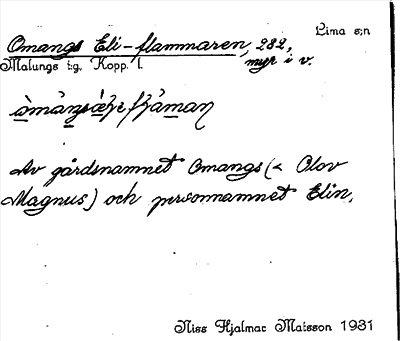 Lima s:n
Omangs Eli-flammaren, 282,
Malungs t:g, Kopp. l. myr i v.
Av gårdsnamnet Omangs (< Olov
Magnus) och personnamnet Elin.
Niss Hjalmar Matsson 1931